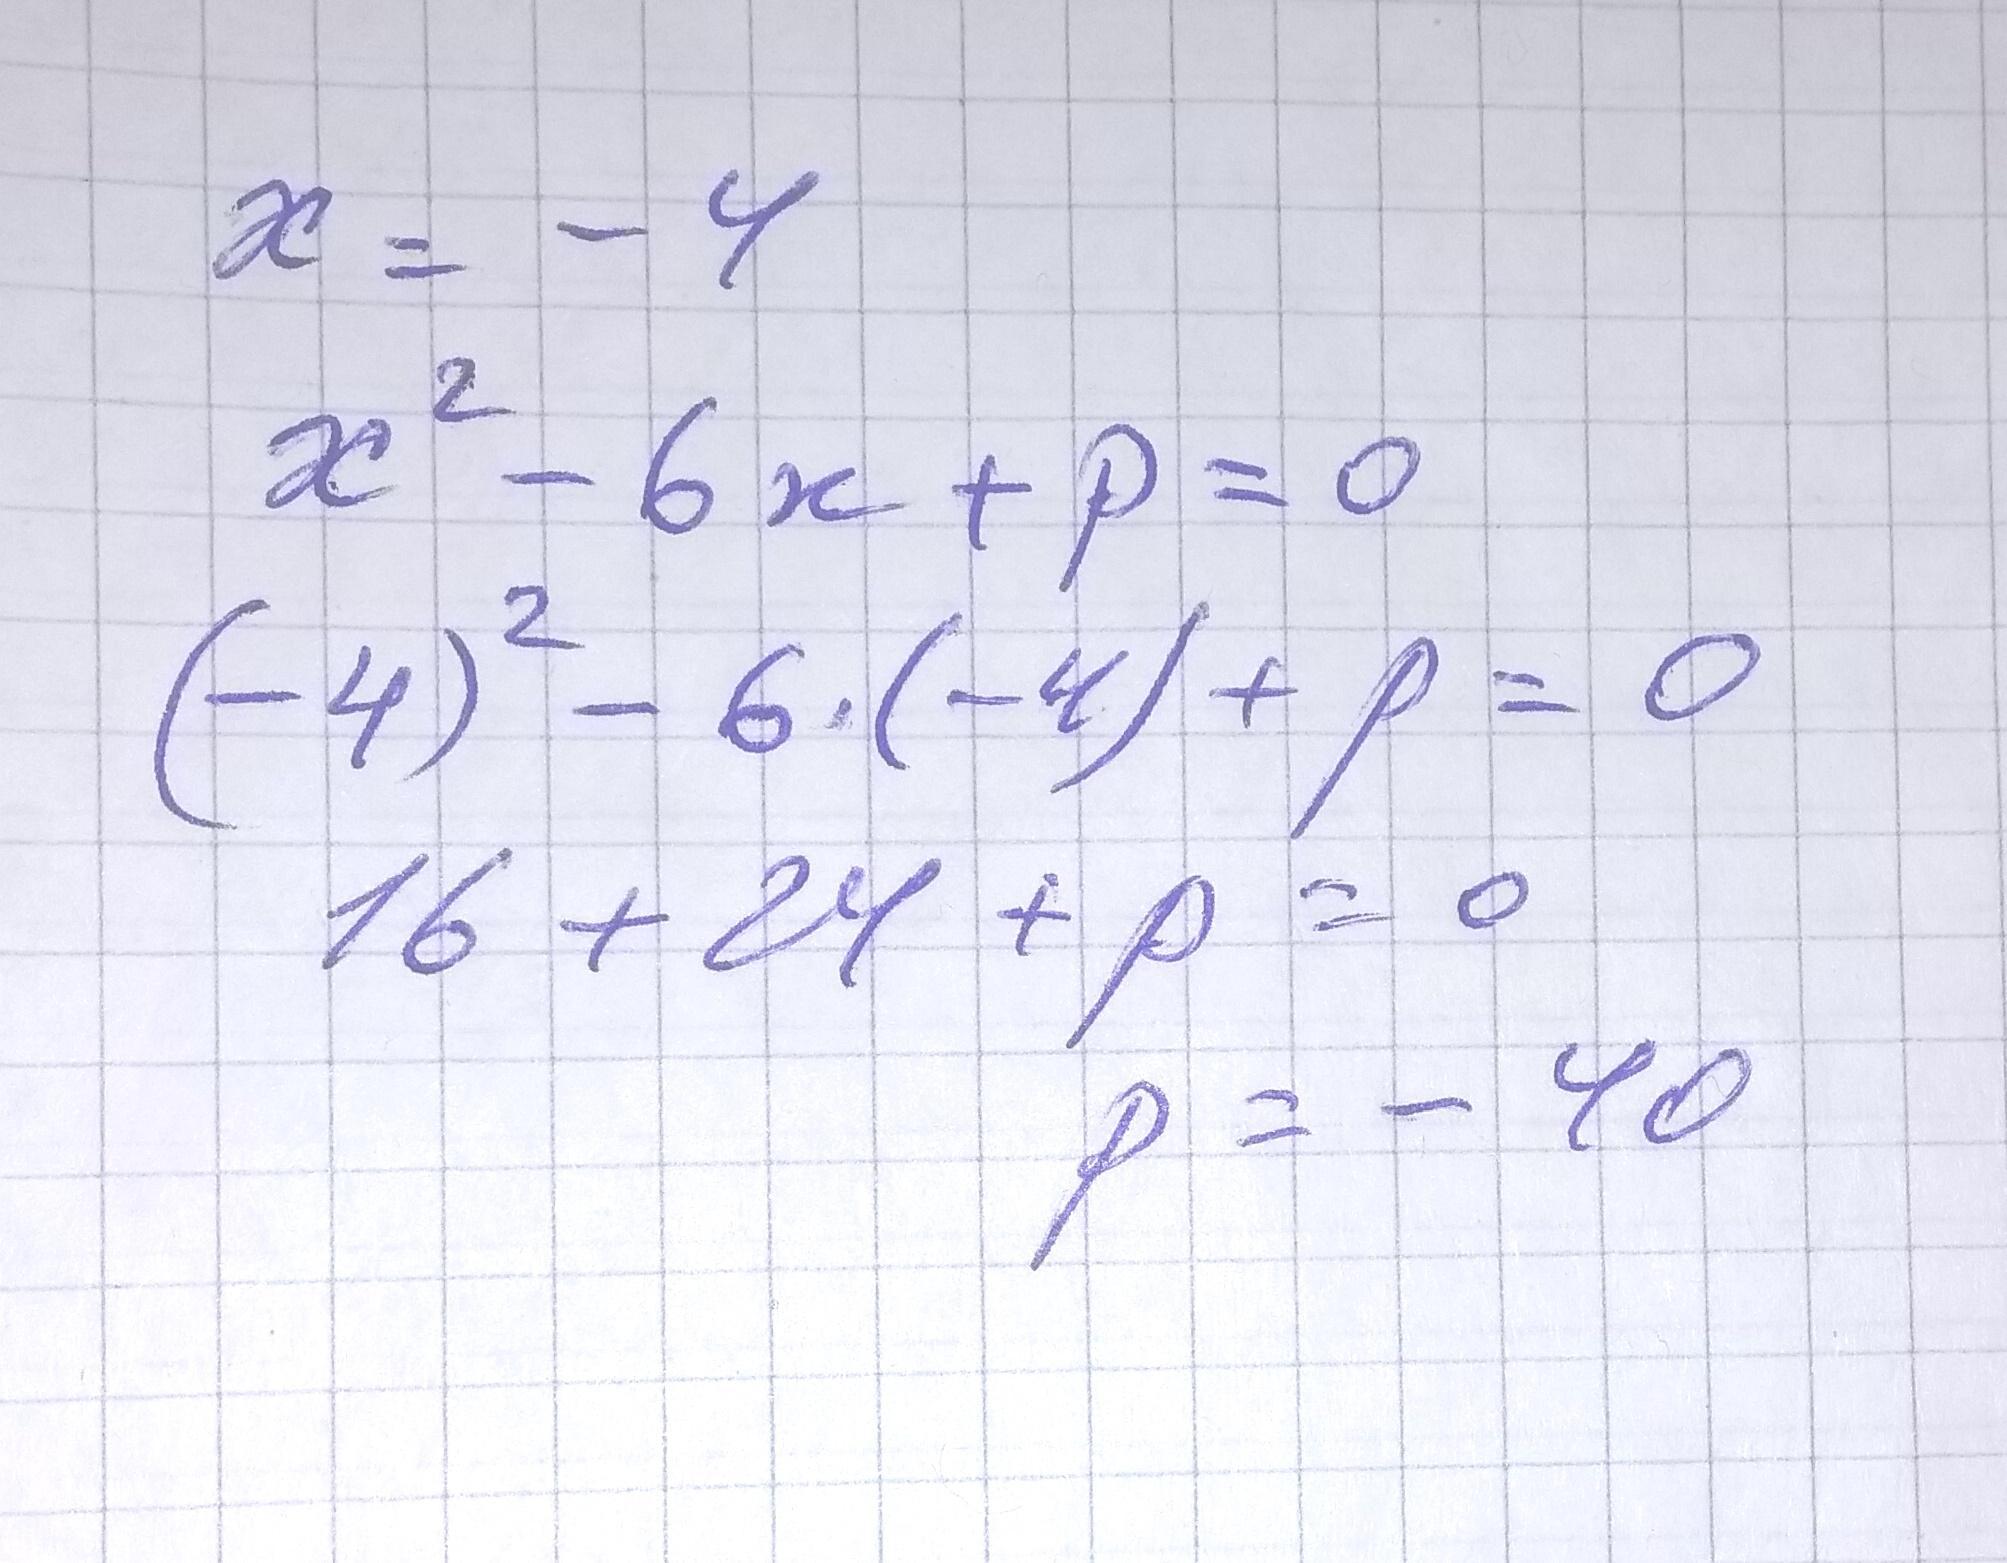 x = - 4
x² - 6x + p = 0
(-4)² - 6·(-4) + p = 0
16 + 24 + p = 0
p = - 40